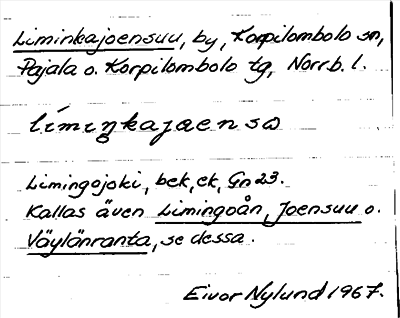 Liminkajoensuu, by, Korpilombolo sn,
Pajala o. Korpilombolo tg, Norrb. l.
límiŋkajaensω
Limingojoki, bek, ek, Gn 23.
Kallas även Limingoån, Joensuu o.
Väylänranta, se dessa.
Eivor Nylund 1967.